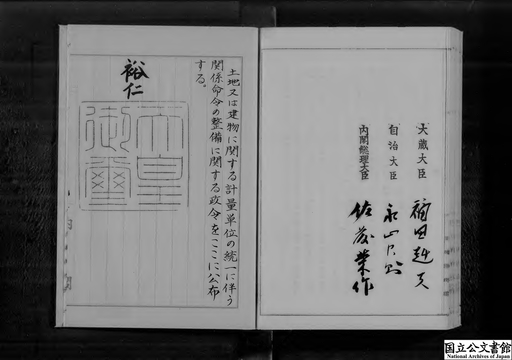 土地又は建物に関する計量単位の統一に伴う
関係命令の整備に関する政令をここに公布
する。
裕仁
天皇
御璽
大蔵大臣 福田赳夫
自治大臣 永山忠則
内閣総理大臣 佐藤榮作
国立公文書館
National Archives of Japan